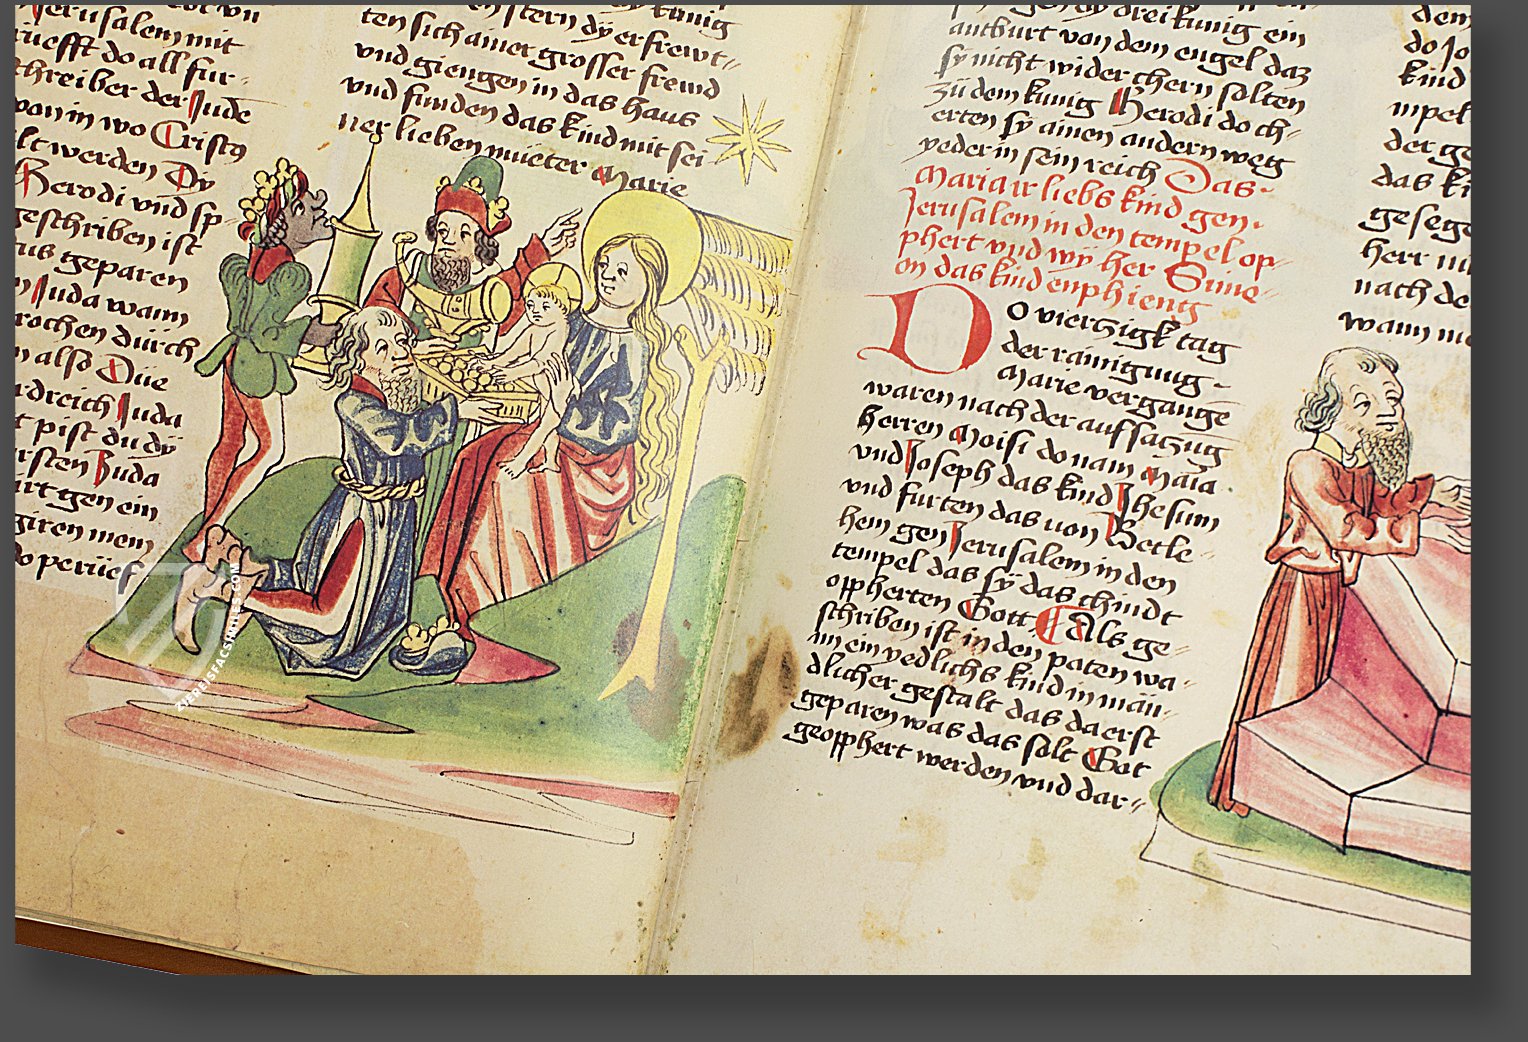 Jerusalem mit
rüefft do all für-
schreiber der Jude
von in wo Cristq
lt werden Dy
Herodi vnd sp-
geschriben ist
tus geparen
n Juda wann
rochen dürch
n also Düe
rdreich Juda
t pist du dÿ
rsten Juda
irt gen ein
giren mein
do perüef
künig
en stern dÿ erfrewt-
ten sich ainer grosser frewd
vnd giengen in das haus
vnd funden das kind mit sei
ner lieben müeter Marie
dÿ drei künig ein
antburt von dem engel daz
sÿ nicht wider chern solten
zü dem künig Herodi do ch-
erten sÿ ainen andern weg
yeder in sein reich Das-
Maria ir liebs kind gen-
Jerusalem in den tempel op-
phert vnd wÿ her Sime-
on das kind enphieng
Do vierzigk tag
der rainigung-
Marie vergange
waren nach der aufsaczug
herren Moisi do nam Maia
vnd Joseph das kind Jhesum
vnd fürten das von Betle-
hem gen Jerusalem in den
tempel das sÿ das chindt
oppherten Gott Als ge-
schriben ist in den paten wa-
im ein yedlichs kind in män-
dlicher gestalt das da erst
geparen was das solt Got
geopphert werden vnd dar-
dem
do Jo
kind
mpel
der ge
das ki
geseg
herr
nach de
wann
ZIEREISFACSIMILES.COM